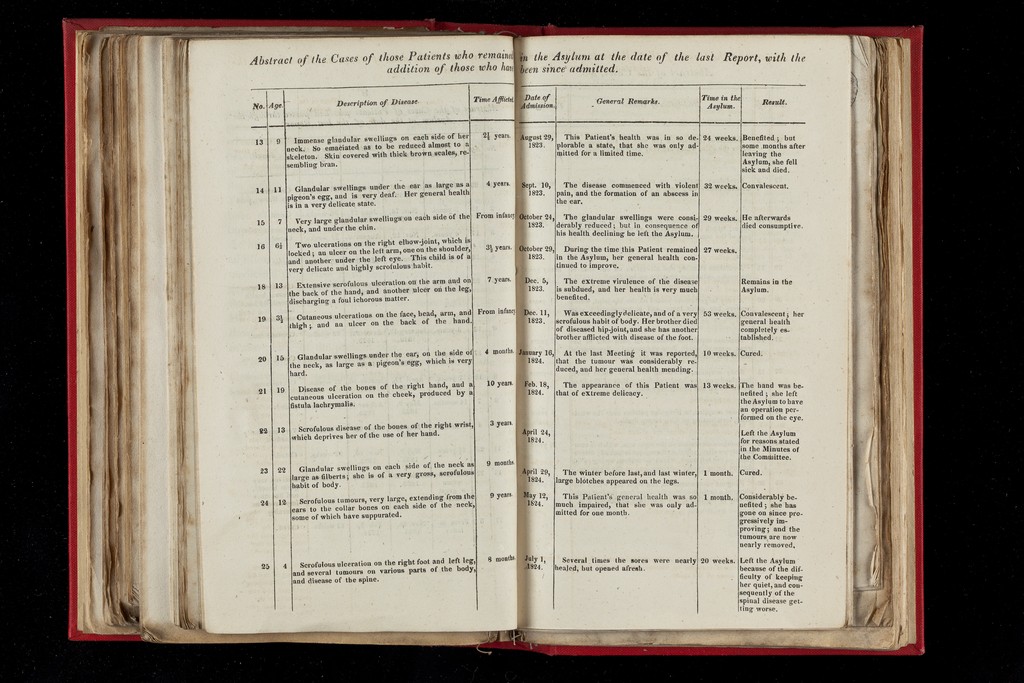 Abstract of the Cases of those Patients who remained in the Asylum at the date of the last Report, with the
addition of those who have been since admitted.
No. Age. Description of Disease. Time Afflicted Date of Admission. General Remarks. Time in the Asylum. Result.
13 9 Immense glandular swellings on each side of her
neck. So emaciated as to be reduced almost to a
skeleton. Skin covered with thick brown scales, re-
sembling bran.
2½ years.
August 29,
1823.
This Patient's health was in so de-
plorable a state, that she was only ad-
mitted for a limited time.
24 weeks.
Benefited; but
some months after
leaving the
Asylum, she fell
sick and died.
14 11 Glandular swellings under the ear as large as a
pigeon's egg, and is very deaf. Her general health
is in a very delicate state.
4 years.
Sept. 10,
1823.
The disease commenced with violent
pain, and the formation of an abscess in
the ear.
32 weeks.
Convalescent.
15 7 Very large glandular swellings on each side of the
neck, and under the chin.
From infancy
October 24,
1823.
The glandular swellings were consi-
derably reduced; but in consequence of
his health declining he left the Asylum.
29 weeks.
He afterwards
died consumptive.
16 6½ Two ulcerations on the right elbow-joint, which is
locked; an ulcer on the left arm, one on the shoulder,
and another under the left eye. This child is of a
very delicate and highly scrofulous habit.
3½ years.
October 29,
1823.
During the time this Patient remained
in the Asylum, her general health con-
tinued to improve.
27 weeks.
18 13 Extensive scrofulous ulceration on the arm and on
the back of the hand, and another ulcer on the leg,
discharging a foul ichorous matter.
7 years.
Dec. 5,
1823.
The extreme virulence of the disease
is subdued, and her health is very much
benefited.
Remains in the
Asylum.
19 3½ Cutaneous ulcerations on the face, head, arm, and
thigh; and an ulcer on the back of the hand.
From infancy
Dec. 11,
1823.
Was exceedingly delicate, and of a very
scrofulous habit of body. Her brother died
of diseased hip-joint, and she has another
brother afflicted with disease of the foot.
53 weeks.
Convalescent; her
general health
completely es-
tablished.
20 15 Glandular swellings under the ear, on the side of
the neck, as large as a pigeon's egg, which is very
hard.
4 months.
January 16,
1824.
At the last Meeting it was reported,
that the tumour was considerably re-
duced, and her general health mending.
10 weeks.
Cured.
21 19 Disease of the bones of the right hand, and a
cutaneous ulceration on the cheek, produced by a
fistula lachrymalis.
10 years.
Feb. 18,
1824.
The appearance of this Patient was
that of extreme delicacy.
13 weeks.
The hand was be-
nefited; she left
the Asylum to have
an operation per-
formed on the eye.
22 13 Scrofulous disease of the bones of the right wrist,
which deprives her of the use of her hand.
3 years.
April 24,
1824.
Left the Asylum
for reasons stated
in the Minutes of
the Committee.
23 22 Glandular swellings on each side of the neck as
large as filberts; she is of a very gross, scrofulous
habit of body.
9 months
April 29,
1824.
The winter before last, and last winter,
large blotches appeared on the legs.
1 month.
Cured.
24 12 Scrofulous tumours, very large, extending from the
ears to the collar bones on each side of the neck,
some of which have suppurated.
9 years.
May 12,
1824.
This Patient's general health was so
much impaired, that she was only ad-
mitted for one month.
1 month.
Considerably be-
nefited; she has
gone on since pro-
gressively im-
proving; and the
tumours are now
nearly removed.
25 4 Scrofulous ulceration on the right foot and left leg,
and several tumours on various parts of the body,
and disease of the spine.
8 months.
July 1,
1824.
Several times the sores were nearly
healed, but opened afresh.
20 weeks.
Left the Asylum
because of the dif-
ficulty of keeping
her quiet, and con-
sequently of the
spinal disease get-
ting worse.